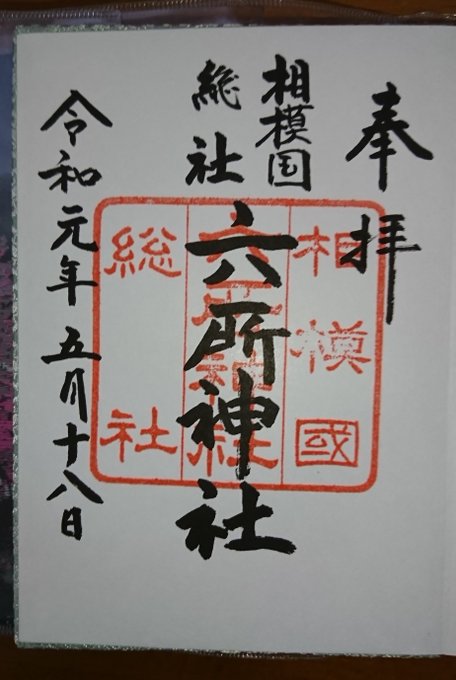 奉拝
相模国
総社
六所神社
令和元年五月十八日
相模國
六所神社
総社